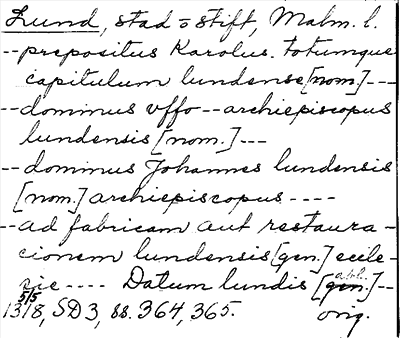 Lund, stad o stift, Malm. l.
--prepositus Karolus. totumque
capitulum lundense [nom.]---
--dominus vffo--archiepiscopus
lundensis [nom.]---
--dominus Johannes lundensis
[nom.] archiepiscopus ----
--ad fabricam aut restaura-
cionem lundensis [gen.] eccle-
sie ---- Datum lundis [gen.]--
abl.
5/5
1318, SD 3, ss. 364, 365. orig.